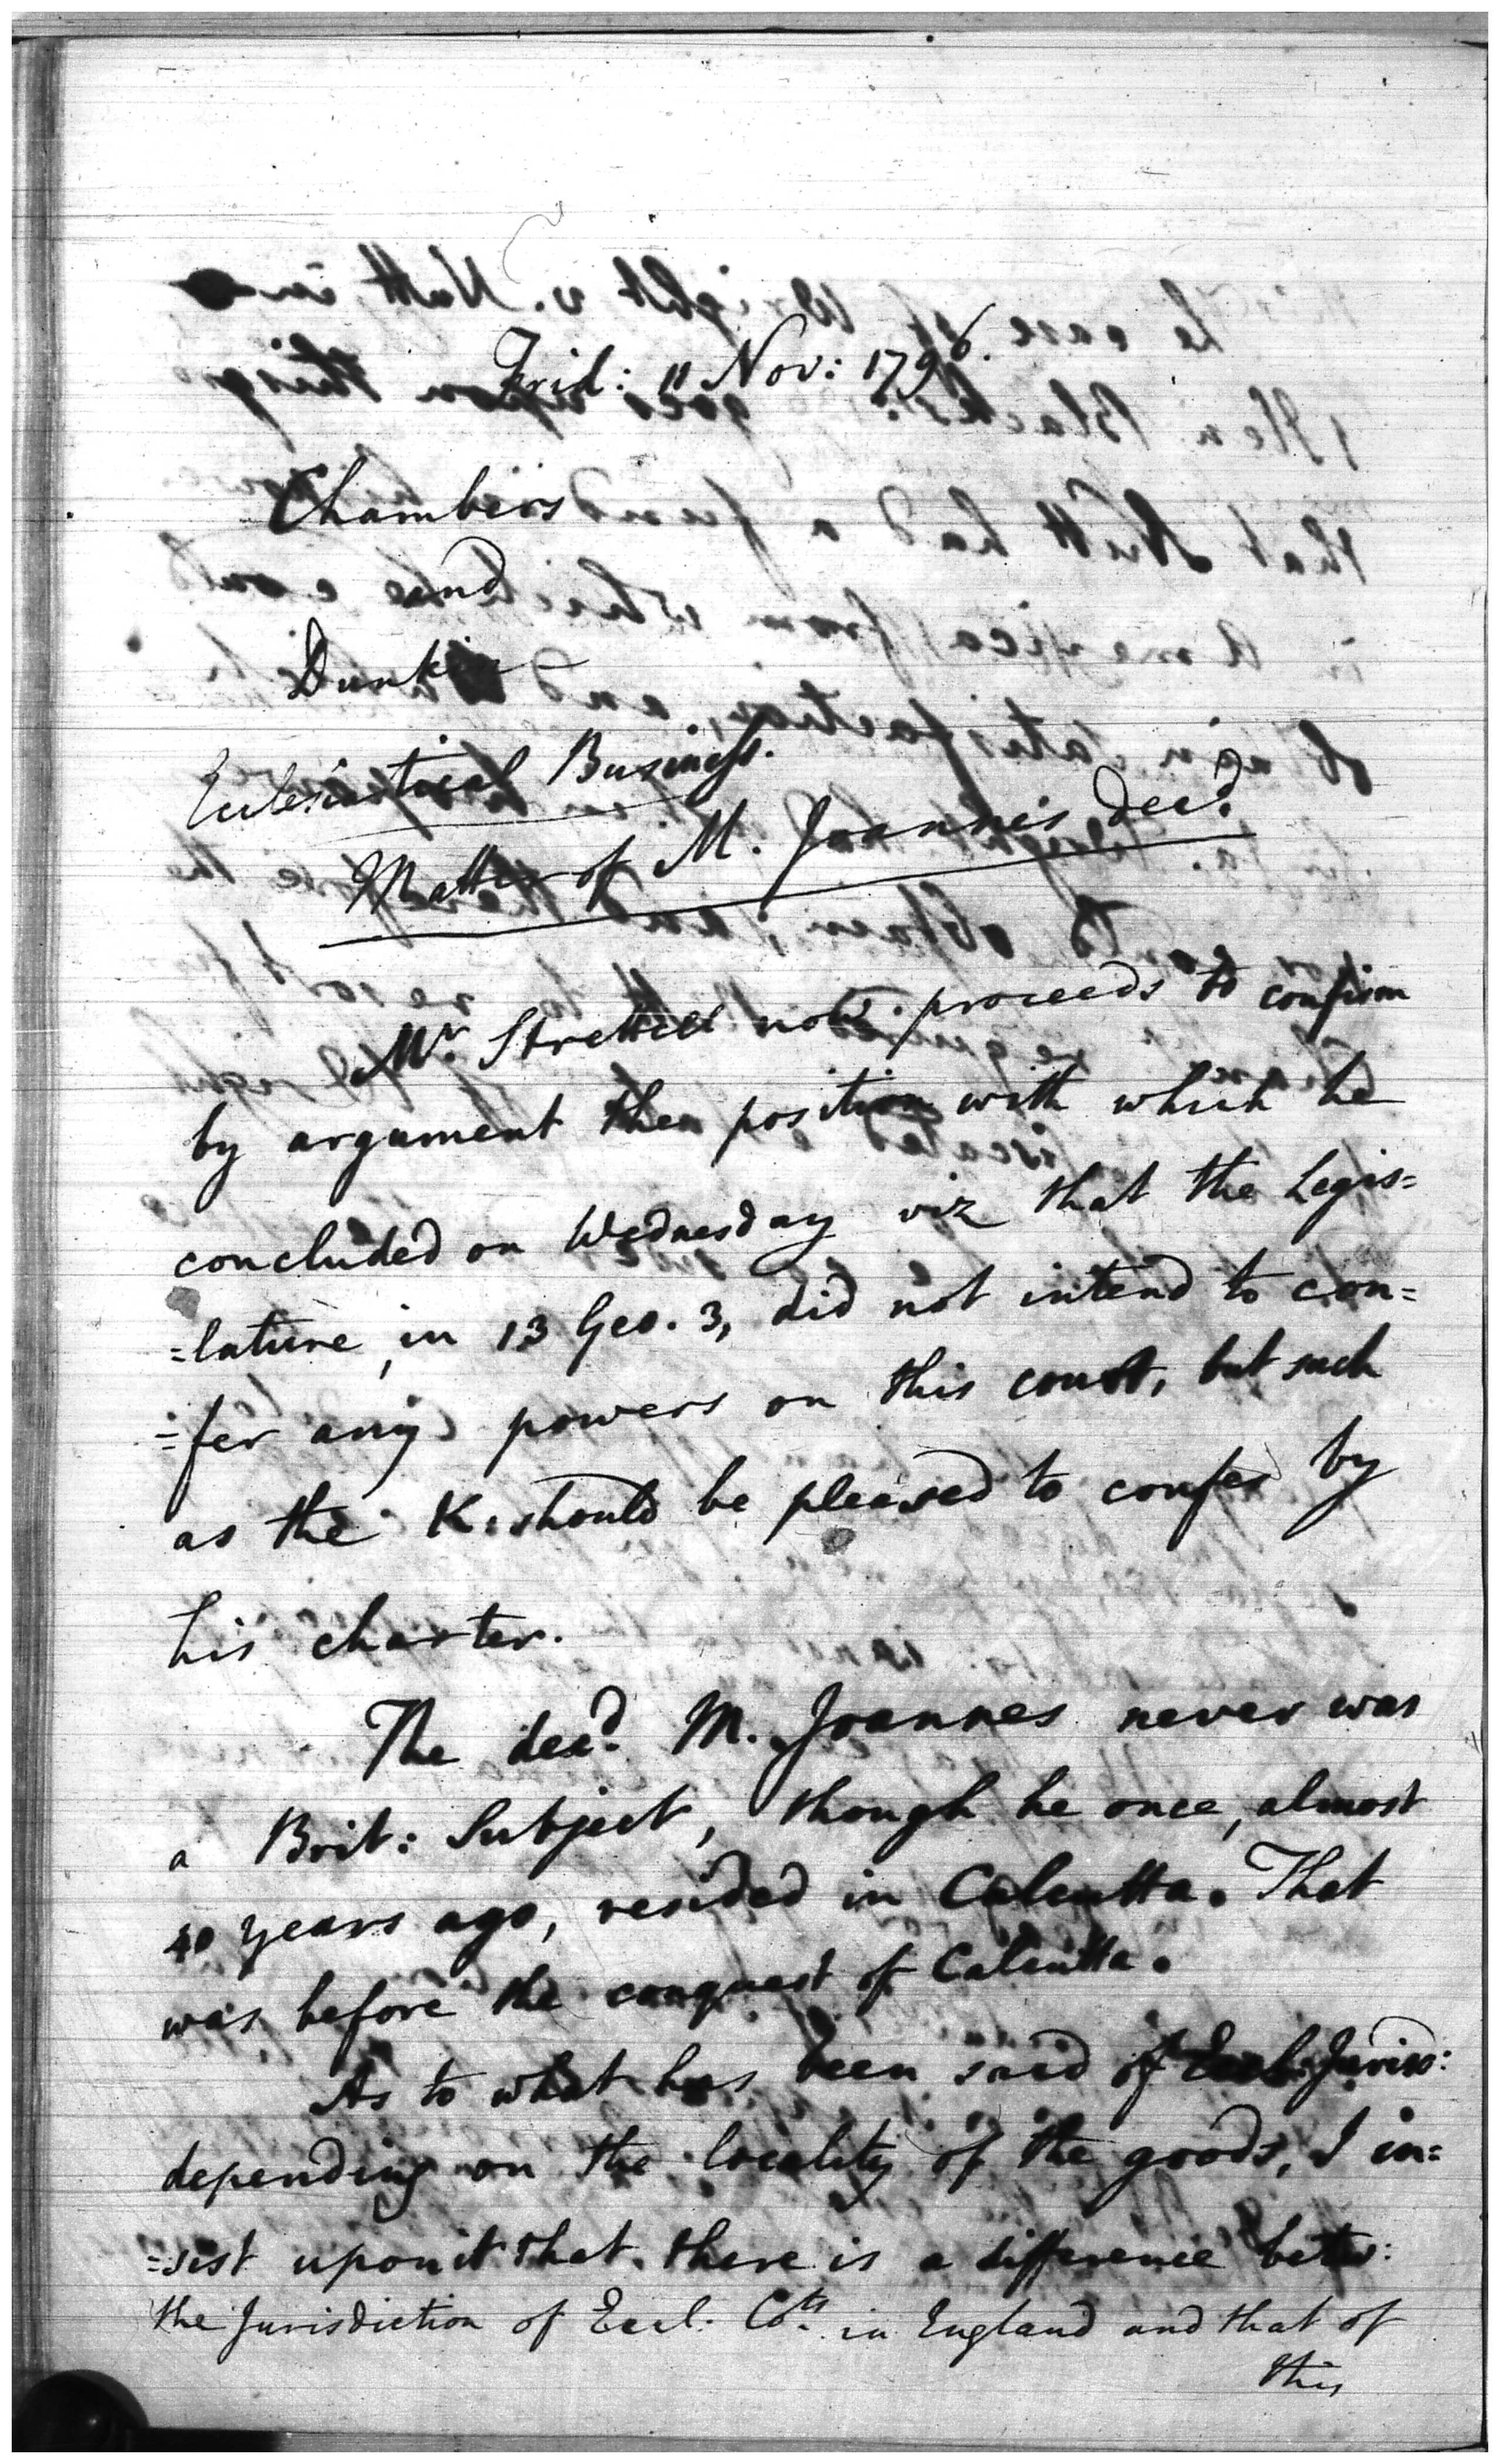 Frid: 11 Nov: 1796.
Chambers
and
Dunkin
Ecclesiastical Business.
Matter of M. Joannes Decd.
Mr. Strettell now proceeds to confirm
by argument the position with which he
concluded on Wednesday viz that the Legis=
=lature, in 13 Geo. 3, did not intend to con=
=fer any powers on this court, but such
as the K. should be pleased to confer by
his charter.
The decd. M. Joannes never was
a Brit: Subject, though he once, almost
40 years ago, resided in Calcutta. That
was before the conquest of Calcutta.
As to what has been said of Eccl: Jurisd:
depending on the locality of the goods, I in=
=sist upon it that there is a difference betw:
the Jurisdiction of Eccl: Cots. in England and that of
this